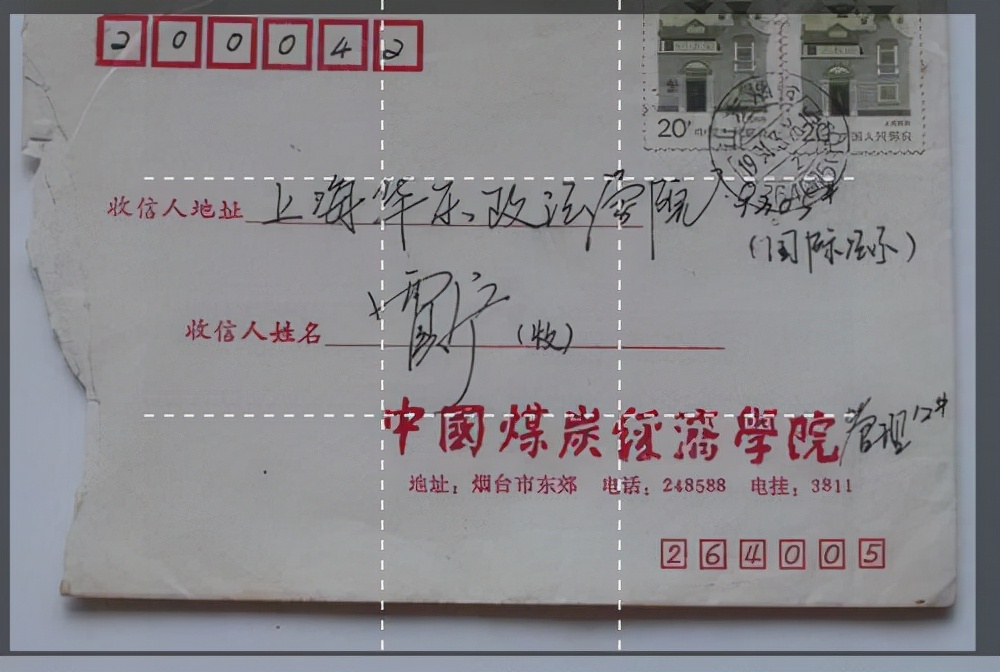 200042
20
20
中国人民邮政
收信人地址 上海华东政法学院
(国际经济)
收信人姓名 (收)
中國煤炭經濟學院 管理12#
地址：烟台市东郊 电话：248588 电挂：3811
264005